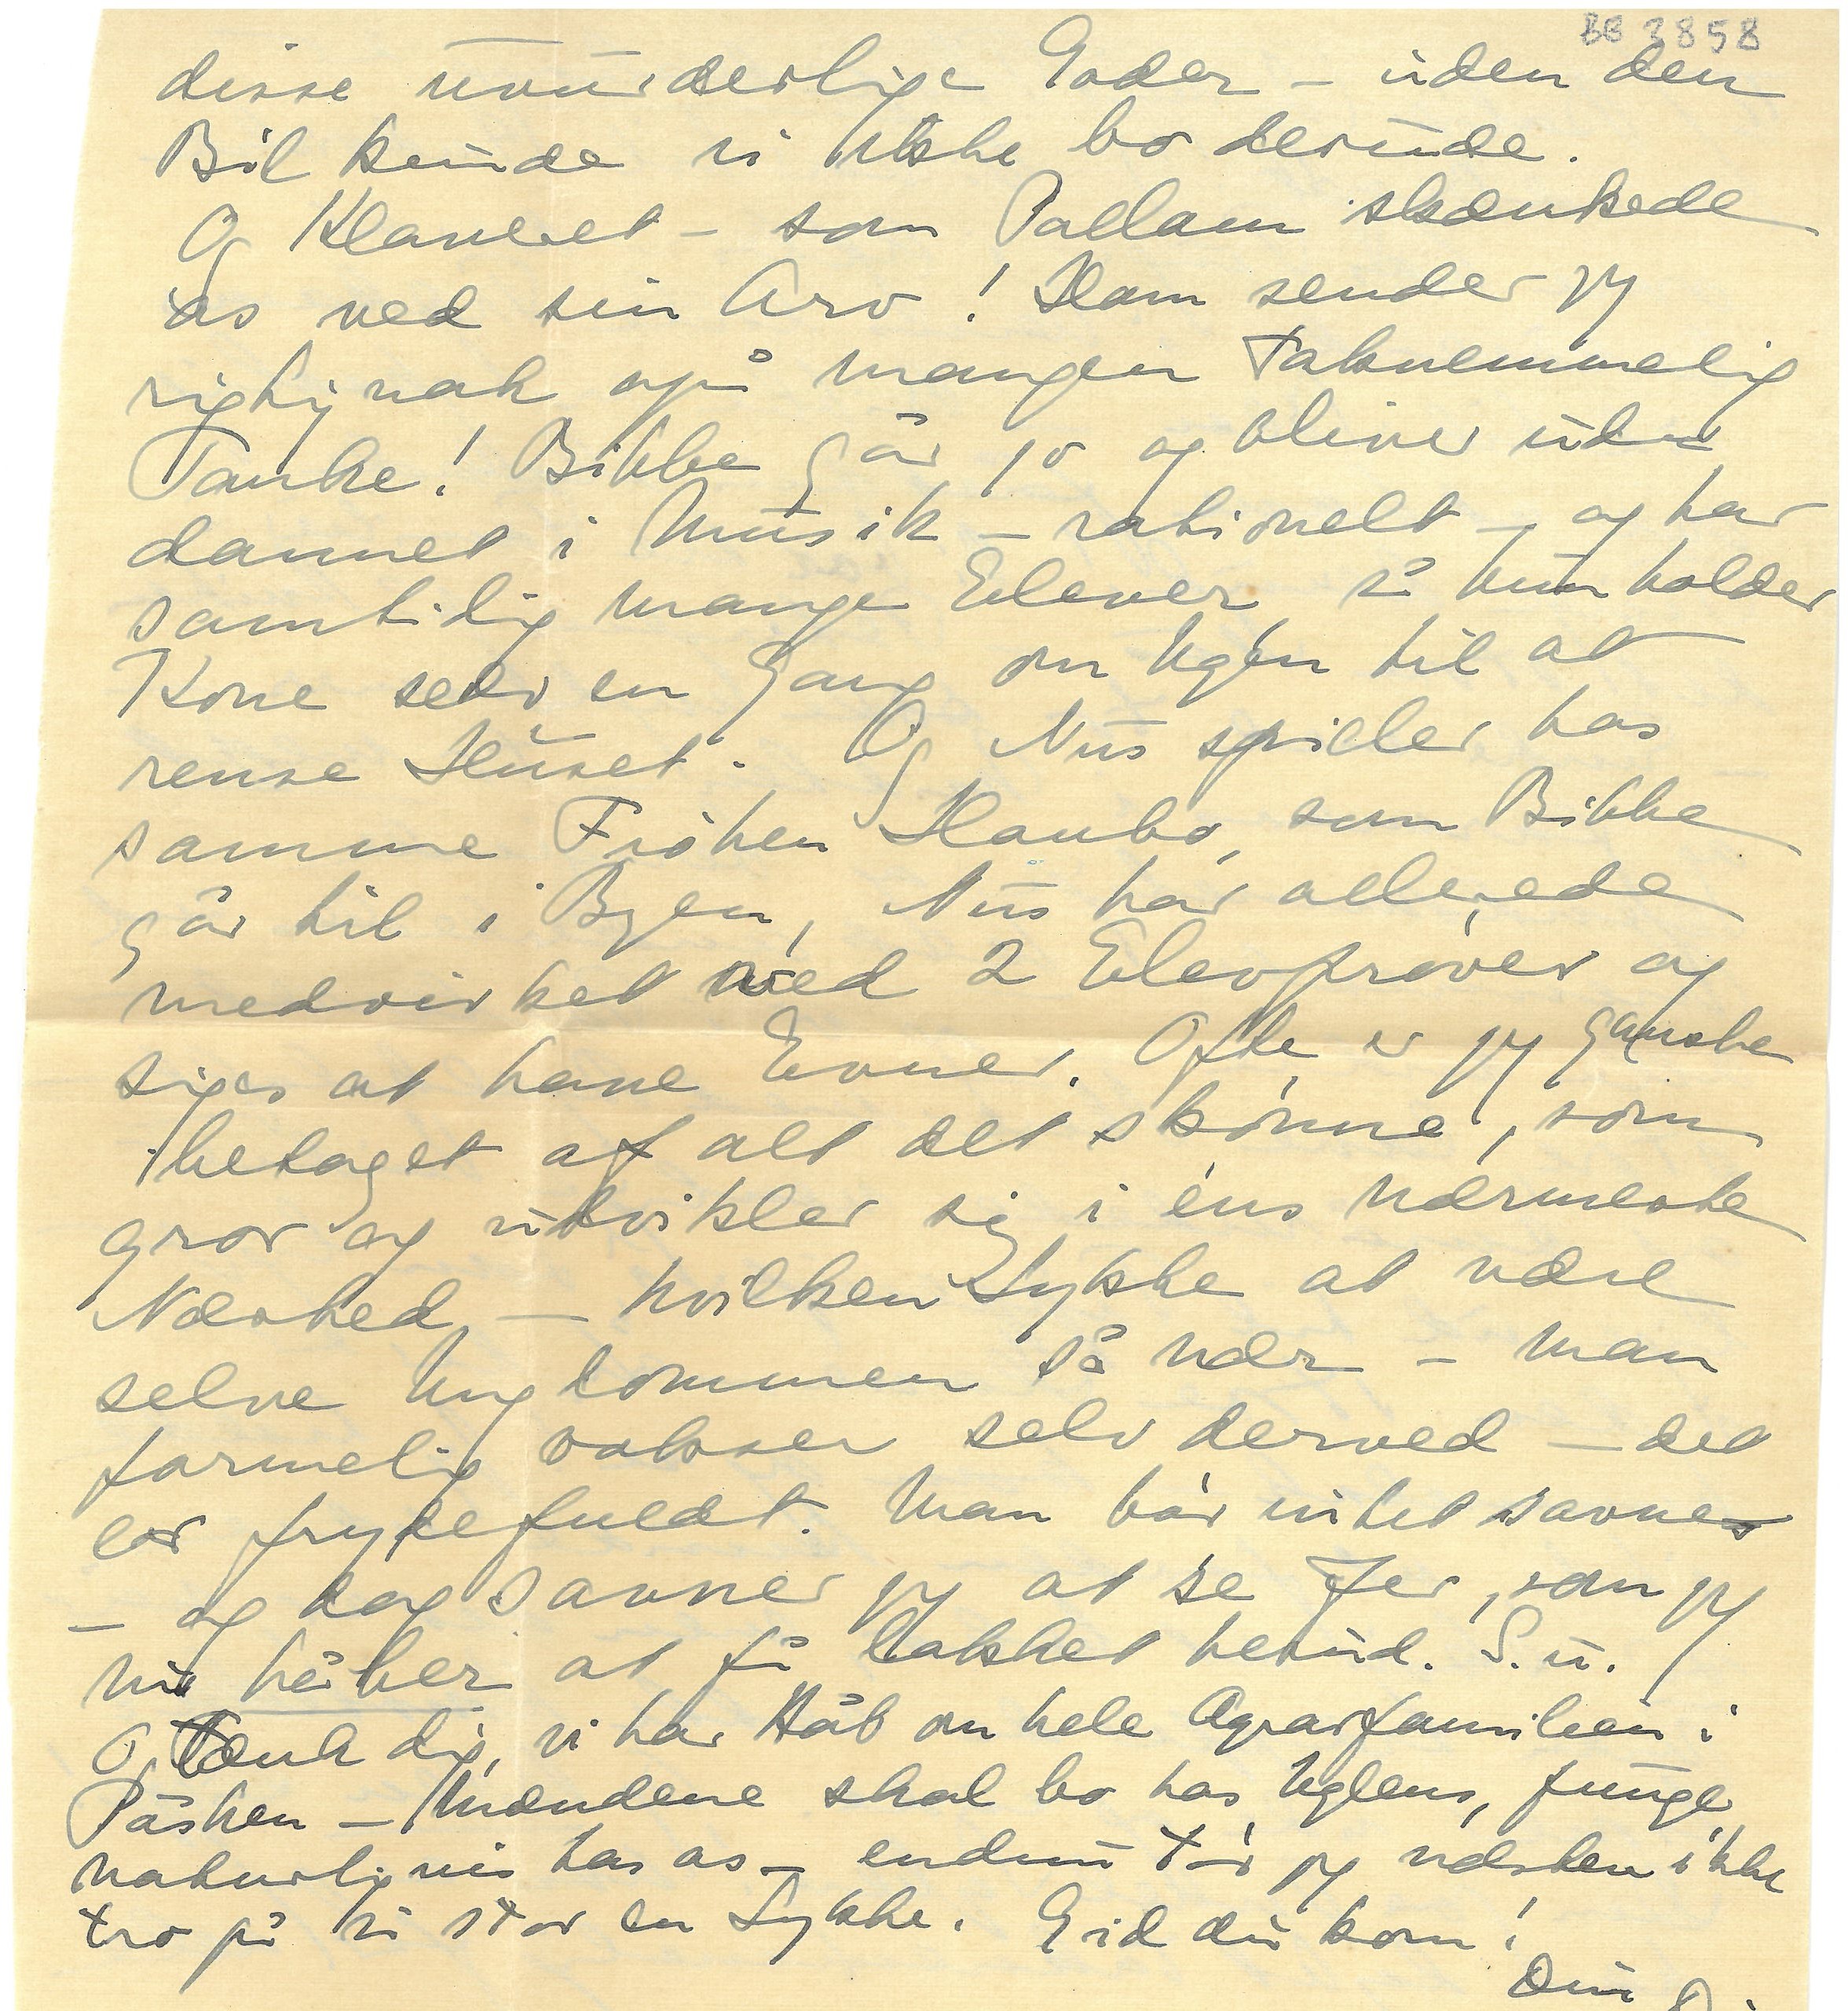 BB 3858
disse uvurderlige Goder – uden den
Bil kunde vi ikke bo derude.
Og Klaveret – som Pallam skænkede
os ved sin Arv! Ham sender jeg
rigtignok også mangen taknemmelig
Tanke! Bibbe går jo og bliver ud-
dannet i Musik – rationelt – og har
samtidig mange Elever så hun holder
Kone selv en Gang om Ugen til at
rense Huset. Og Nus spiller hos
samme Frøken Haubo, som Bibbe
går til i Byen, Nus har allerede
medvirket ved 2 Elevprøver og
siges at have Evner. Ofte er jeg ganske
betaget af alt det skønne, som
gror og udvikler sig i éns nærmeste
Nærhed, – hvilken Lykke at være
selve Ungdommen så nær – man
formelig vokser selv derved – det
er frydefuldt. Man bør intet savne
– og dog savner jeg at se Jer, som jeg
nu håber at få lokket herud. S.u.
O, Tænk dig, vi har Håb om hele Agrarfamilien i
Påsken – Mændene skal bo hos Uglens, Junge
naturligvis hos os – endnu tør jeg næsten ikke
tro på så stor en Lykke. Gid du kom!
Din